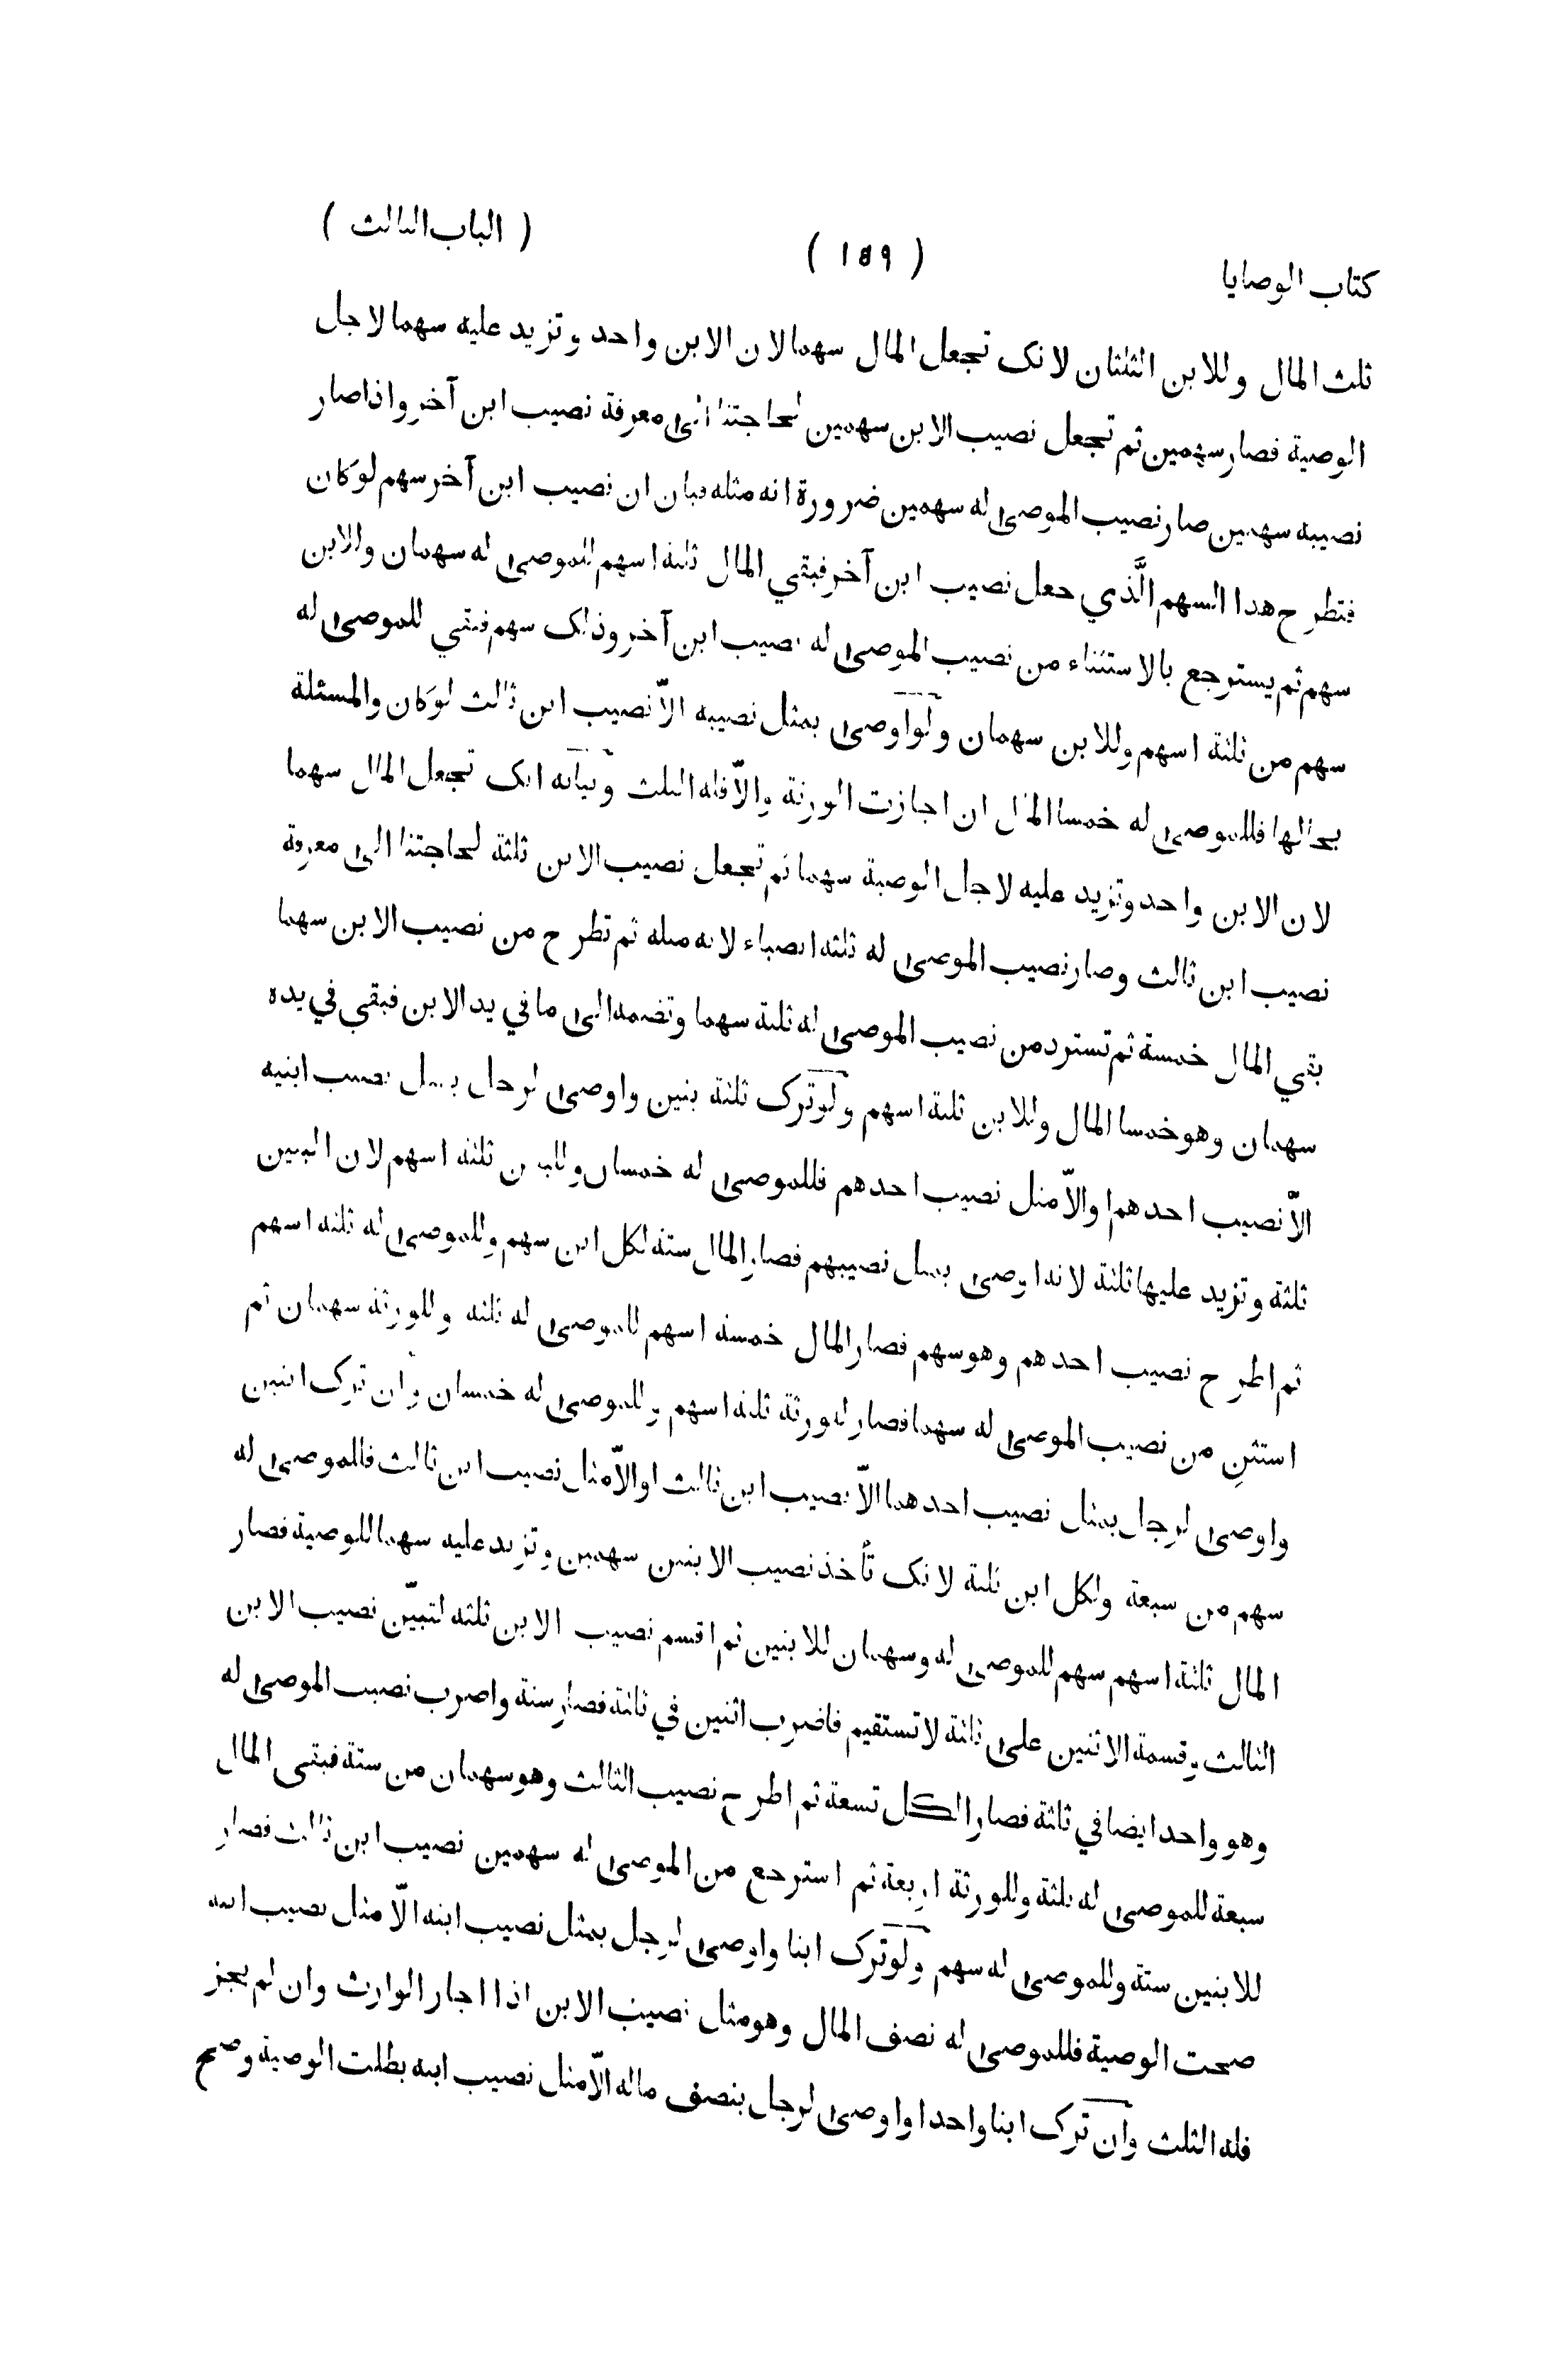 كتاب الوصايا ( ١٥٩ ) ( الباب الثالث )
ثلث المال وللابن الثلثان لانك تجعل المال سهما لان الابن واحد وتزيد عليه سهما لاجل
الوصية فصار سهمين ثم تجعل نصيب الابن سهمين لحاجتنا الى معرفة نصيب ابن آخر واذا صار
نصيبه سهمين صار نصيب الموصى له سهمين ضرورة انه مثله فبان ان نصيب ابن آخر سهم لوكان
فتطرح هذا السهم الَّذي جعل نصيب ابن آخر فبقي المال ثلثة اسهم للموصى له سهمان وللابن
سهم ثم يسترجع بالاستثناء من نصيب الموصى له نصيب ابن آخر وذلك سهم فبقي للموصى له
سهم من ثلثة اسهم وللابن سهمان ولو اوصى بمثل نصيبه الاّ نصيب ابن ثالث لوكان والمسئلة
بحالها فللموصى له خمسا المال ان اجازت الورثة والاّ فله الثلث وبيانه انك تجعل المال سهما
لان الابن واحد وتزيد عليه لاجل الوصية سهما ثم تجعل نصيب الابن ثلثة لحاجتنا الى معرفة
نصيب ابن ثالث وصار نصيب الموصى له ثلثة انصباء لانه مثله ثم تطرح من نصيب الابن سهما
بقي المال خمسة ثم تسترد من نصيب الموصى له ثلثة سهما وتضمه الى ما في يد الابن فبقى في يده
سهمان وهو خمسا المال وللابن ثلثة اسهم ولو ترك ثلثة بنين واوصى لرجل بمثل نصيب ابنيه
الاّ نصيب احدهم او الاّ مثل نصيب احدهم فللموصى له خمسان وللبنين ثلثة اسهم لان البنين
ثلثة وتزيد عليها ثلثة لانه اوصى بمثل نصيبهم فصار المال ستة لكل ابن سهم وللموصى له ثلثة اسهم
ثم اطرح نصيب احدهم وهو سهم فصار المال خمسة اسهم للموصى له ثلثة وللورثة سهمان ثم
استثنِ من نصيب الموصى له سهما فصار لورثة ثلثة اسهم وللموصى له خمسان وان ترك ابنين
واوصى لرجل بمثل نصيب احدهما الاّ نصيب ابن ثالث او الاّ مثل نصيب ابن ثالث فللموصى له
سهم من سبعة ولكل ابن ثلثة لانك تأخذ نصيب الابنين سهمين وتزيد عليه سهما للوصية فصار
المال ثلثة اسهم سهم للموصى له وسهمان للابنين ثم اقسم نصيب الابن ثلثة لتبيّن نصيب الابن
الثالث وقسمة الاثنين على ثلثة لا تستقيم فاضرب اثنين في ثلثة فصار ستة واضرب نصيب الموصى له
وهو واحد ايضا في ثلثة فصار الكل تسعة ثم اطرح نصيب الثالث وهو سهمان من ستة فبقى المال
سبعة للموصى له ثلثة وللورثة اربعة ثم استرجع من الموصى له سهمين نصيب ابن ثالث فصار
للابنين ستة وللموصى له سهم ولو ترك ابنا واوصى لرجل بمثل نصيب ابنه الاّ مثل نصيب ابنه
صحت الوصية فللموصى له نصف المال وهو مثل نصيب الابن اذا اجاز الوارث وان لم يجز
فله الثلث وان ترك ابنا واحدا واوصى لرجل بنصف ماله الاّ مثل نصيب ابنه بطلت الوصية وصح